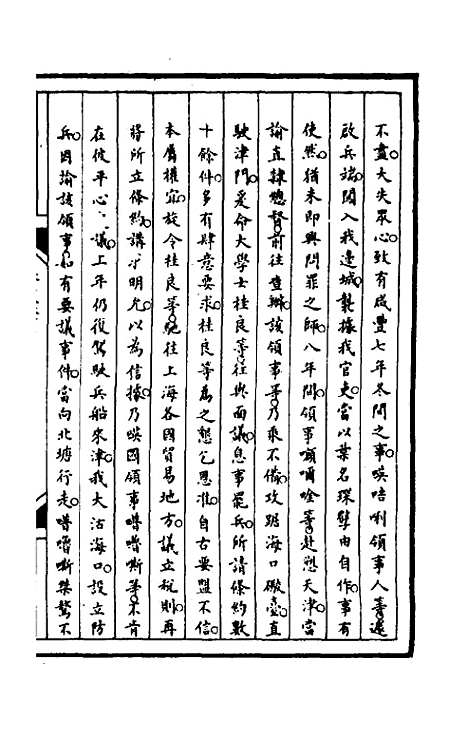 不盡大失眾心致有咸豐七年冬間之事㗸咭唎領事人等遽
啟兵端闖入我邊城執據我官吏當以葉名琛孽由自作事有
使然猶未即興問罪之師八年間領事嘓囒唫等赴愬天津當
諭直隸總督前往查辦該領事等乃乘不備攻踞海口礮臺直
駛津門爰命大學士桂良等往與面議息事罷兵所請條約數
十餘件多有肆意要求桂良等為之懇乞恩准自古要盟不信
本屬權宜旋令桂良等馳往上海各國貿易地方議立稅則再
將所立條約講求明允以為信據乃㗸國領事嚕嚕嘶等不肯
在彼平心 議上年仍復駕駛兵船來津我大沽海口設立防
兵因諭該領事如有要議事件當向北塘行走嚕嚕嘶桀驁不